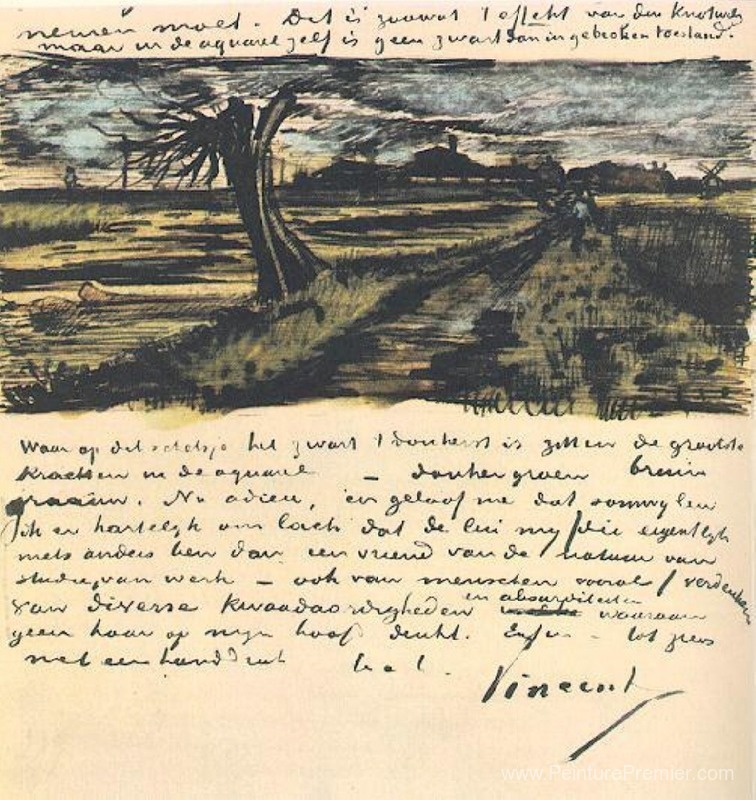 nemen moet. Dit is zoowat 't effekt van den Knotwilg
maar in de aquarel zelf is geen zwart dan in gebroken toestand.
Waar op dit schetsje het zwart 't donkerst is zitten de grootste
krachten in de aquarel – donkergroen bruin
graauw. Nu adieu, en geloof me dat somwylen
ik er hartelyk om lach dat de lui my die eigentlyk
niets anders ben dan een vriend van de natuur van
studie, van werk – ook van menschen vooral / verdenken
van diverse kwaadaardigheden en absurditeiten waaraan
geen haar op myn hoofd denkt. Enfin – tot ziens
met een handdruk t. à t.
Vincent
www.PeinturePremier.com